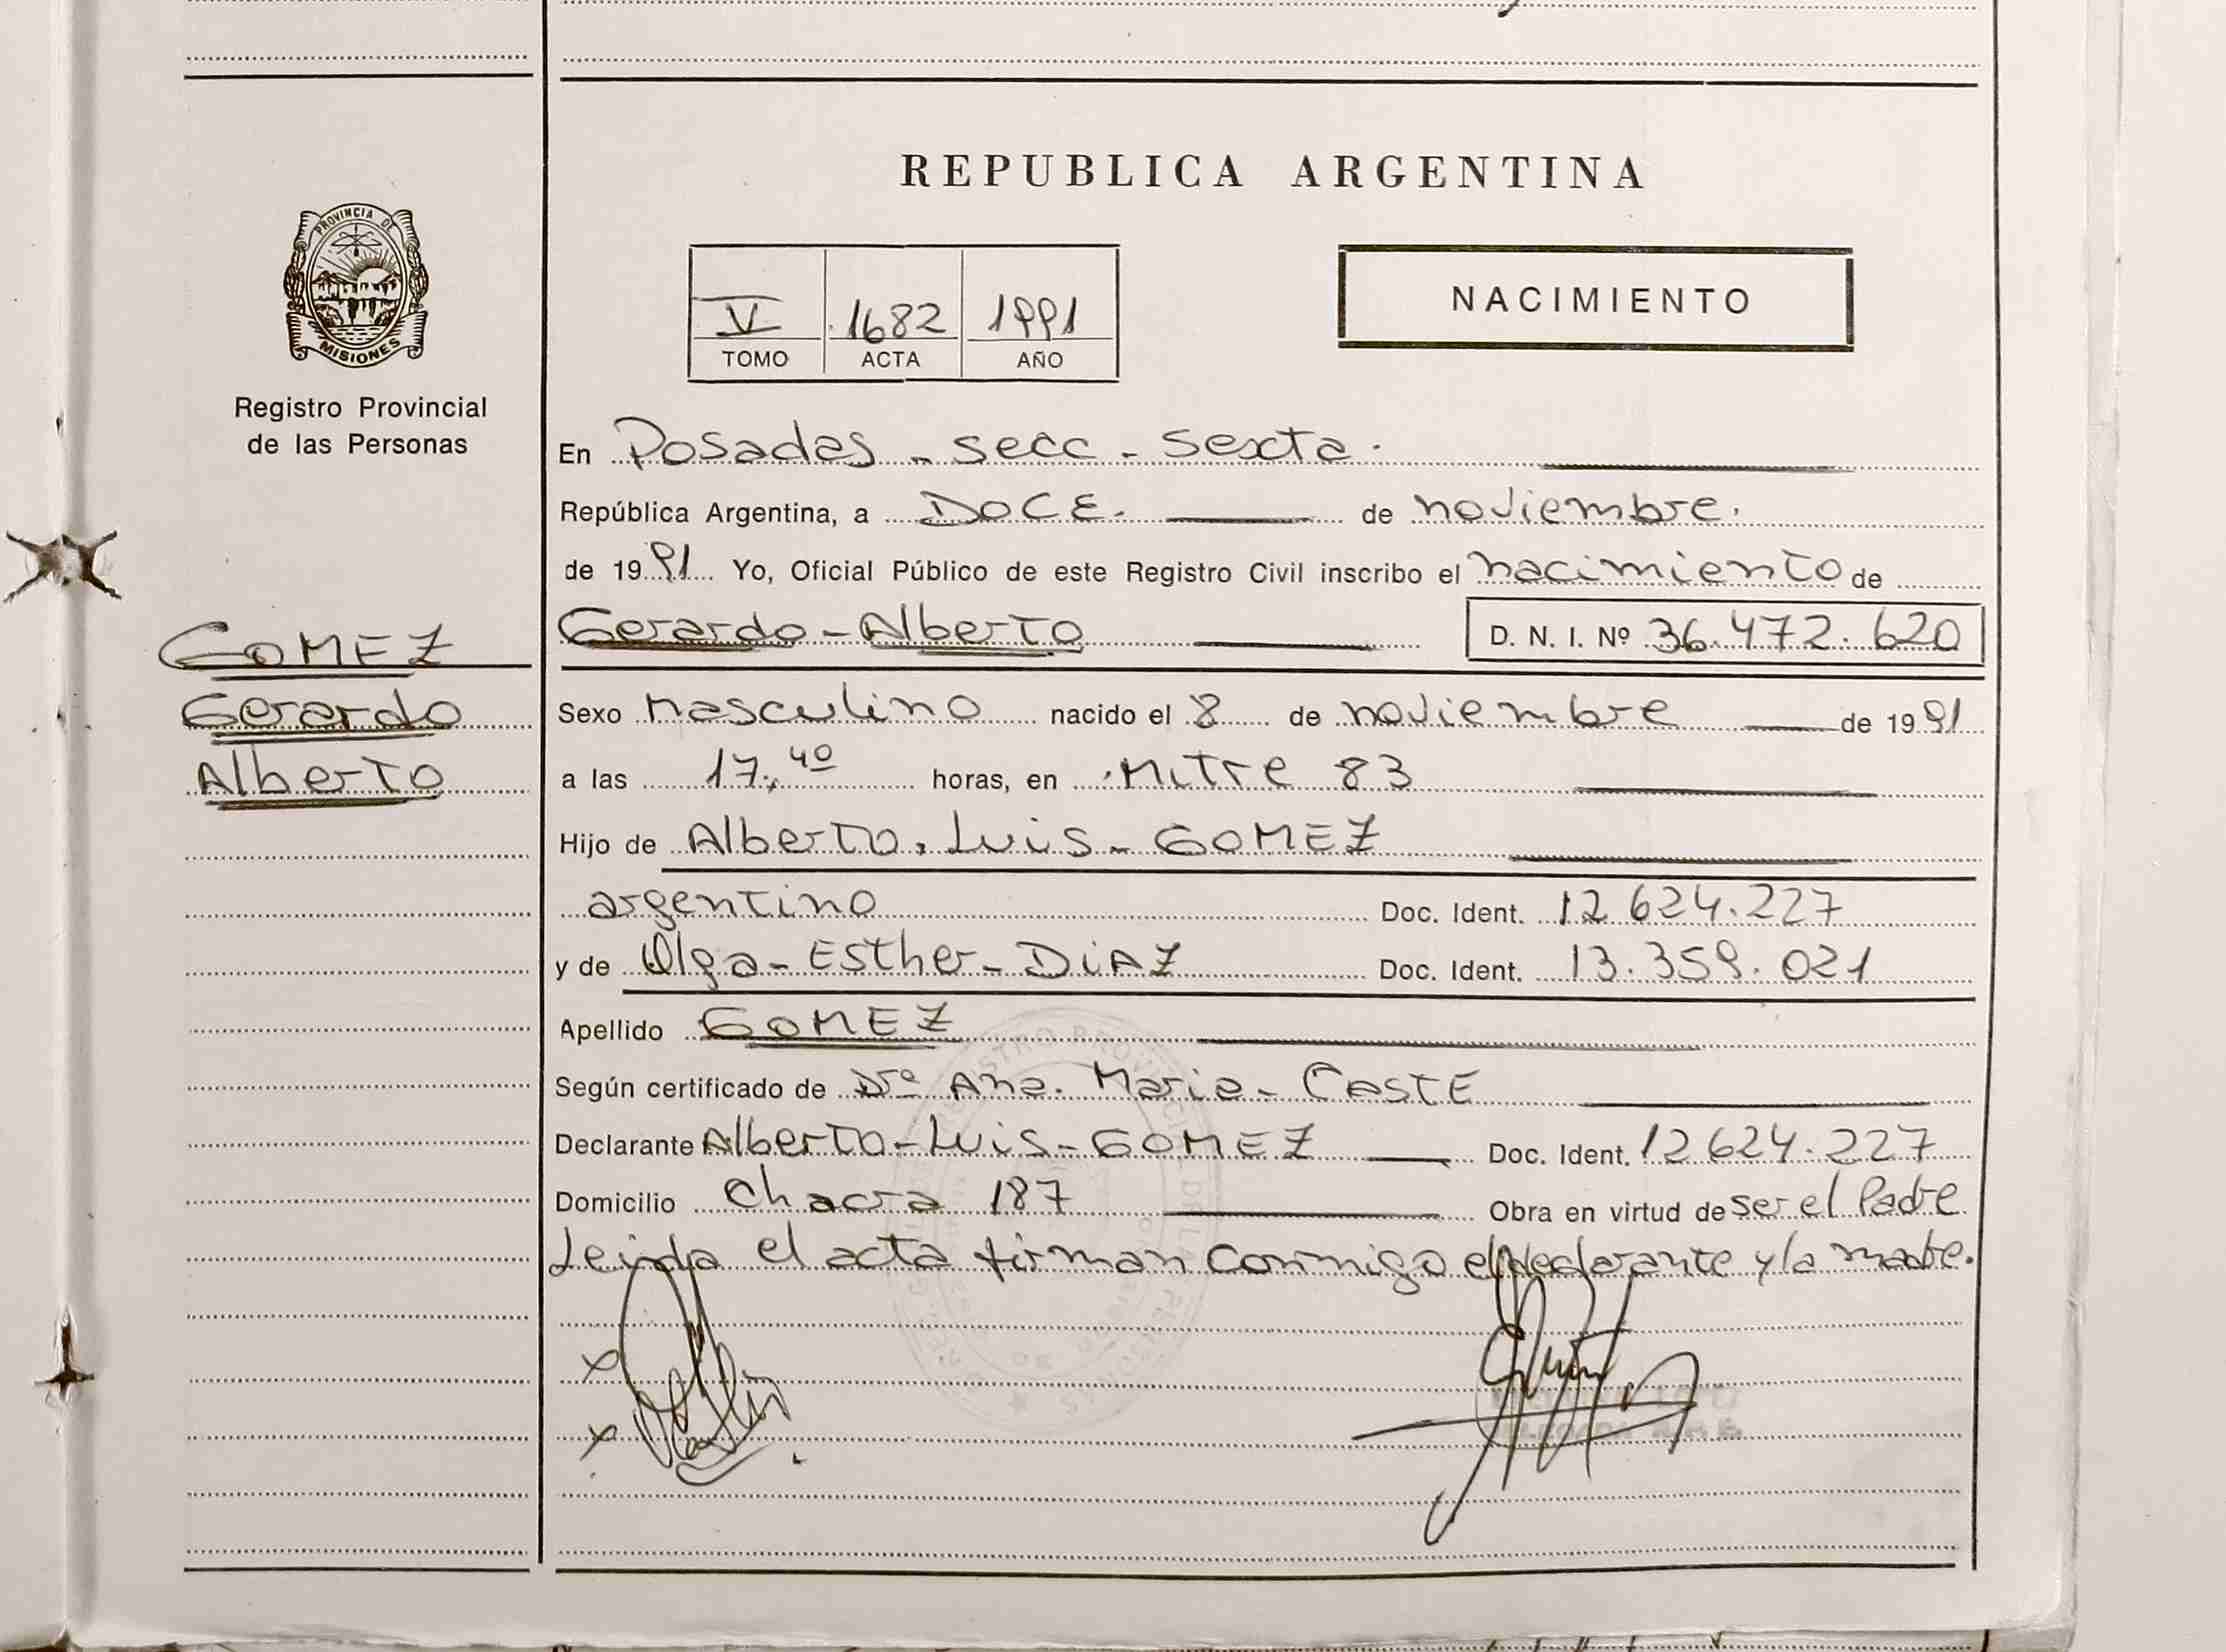 REPUBLICA ARGENTINA
PROVINCIA DE
MISIONES
Registro Provincial
de las Personas
V 1682 1991
TOMO ACTA AÑO
NACIMIENTO
En Posadas - secc - sexta.
República Argentina, a DOCE. de noviembre.
de 1991 Yo, Oficial Público de este Registro Civil inscribo el nacimiento de
GOMEZ
Gerardo
Alberto
Gerardo - Alberto D. N. I. Nº 36.472.620
Sexo masculino nacido el 8 de noviembre de 1991
a las 17,40 horas, en Mitre 83
Hijo de Alberto. Luis - GOMEZ
argentino Doc. Ident. 12 624.227
y de Olga - Esther - DiAZ Doc. Ident. 13.359.021
Apellido GOMEZ
Según certificado de Dra Ana. Maria - CASTE
Declarante Alberto - Luis - GOMEZ Doc. Ident. 12 624.227
Domicilio Chacra 187 Obra en virtud de ser el Padre
Leida el acta firman conmigo el declarante y la madre.